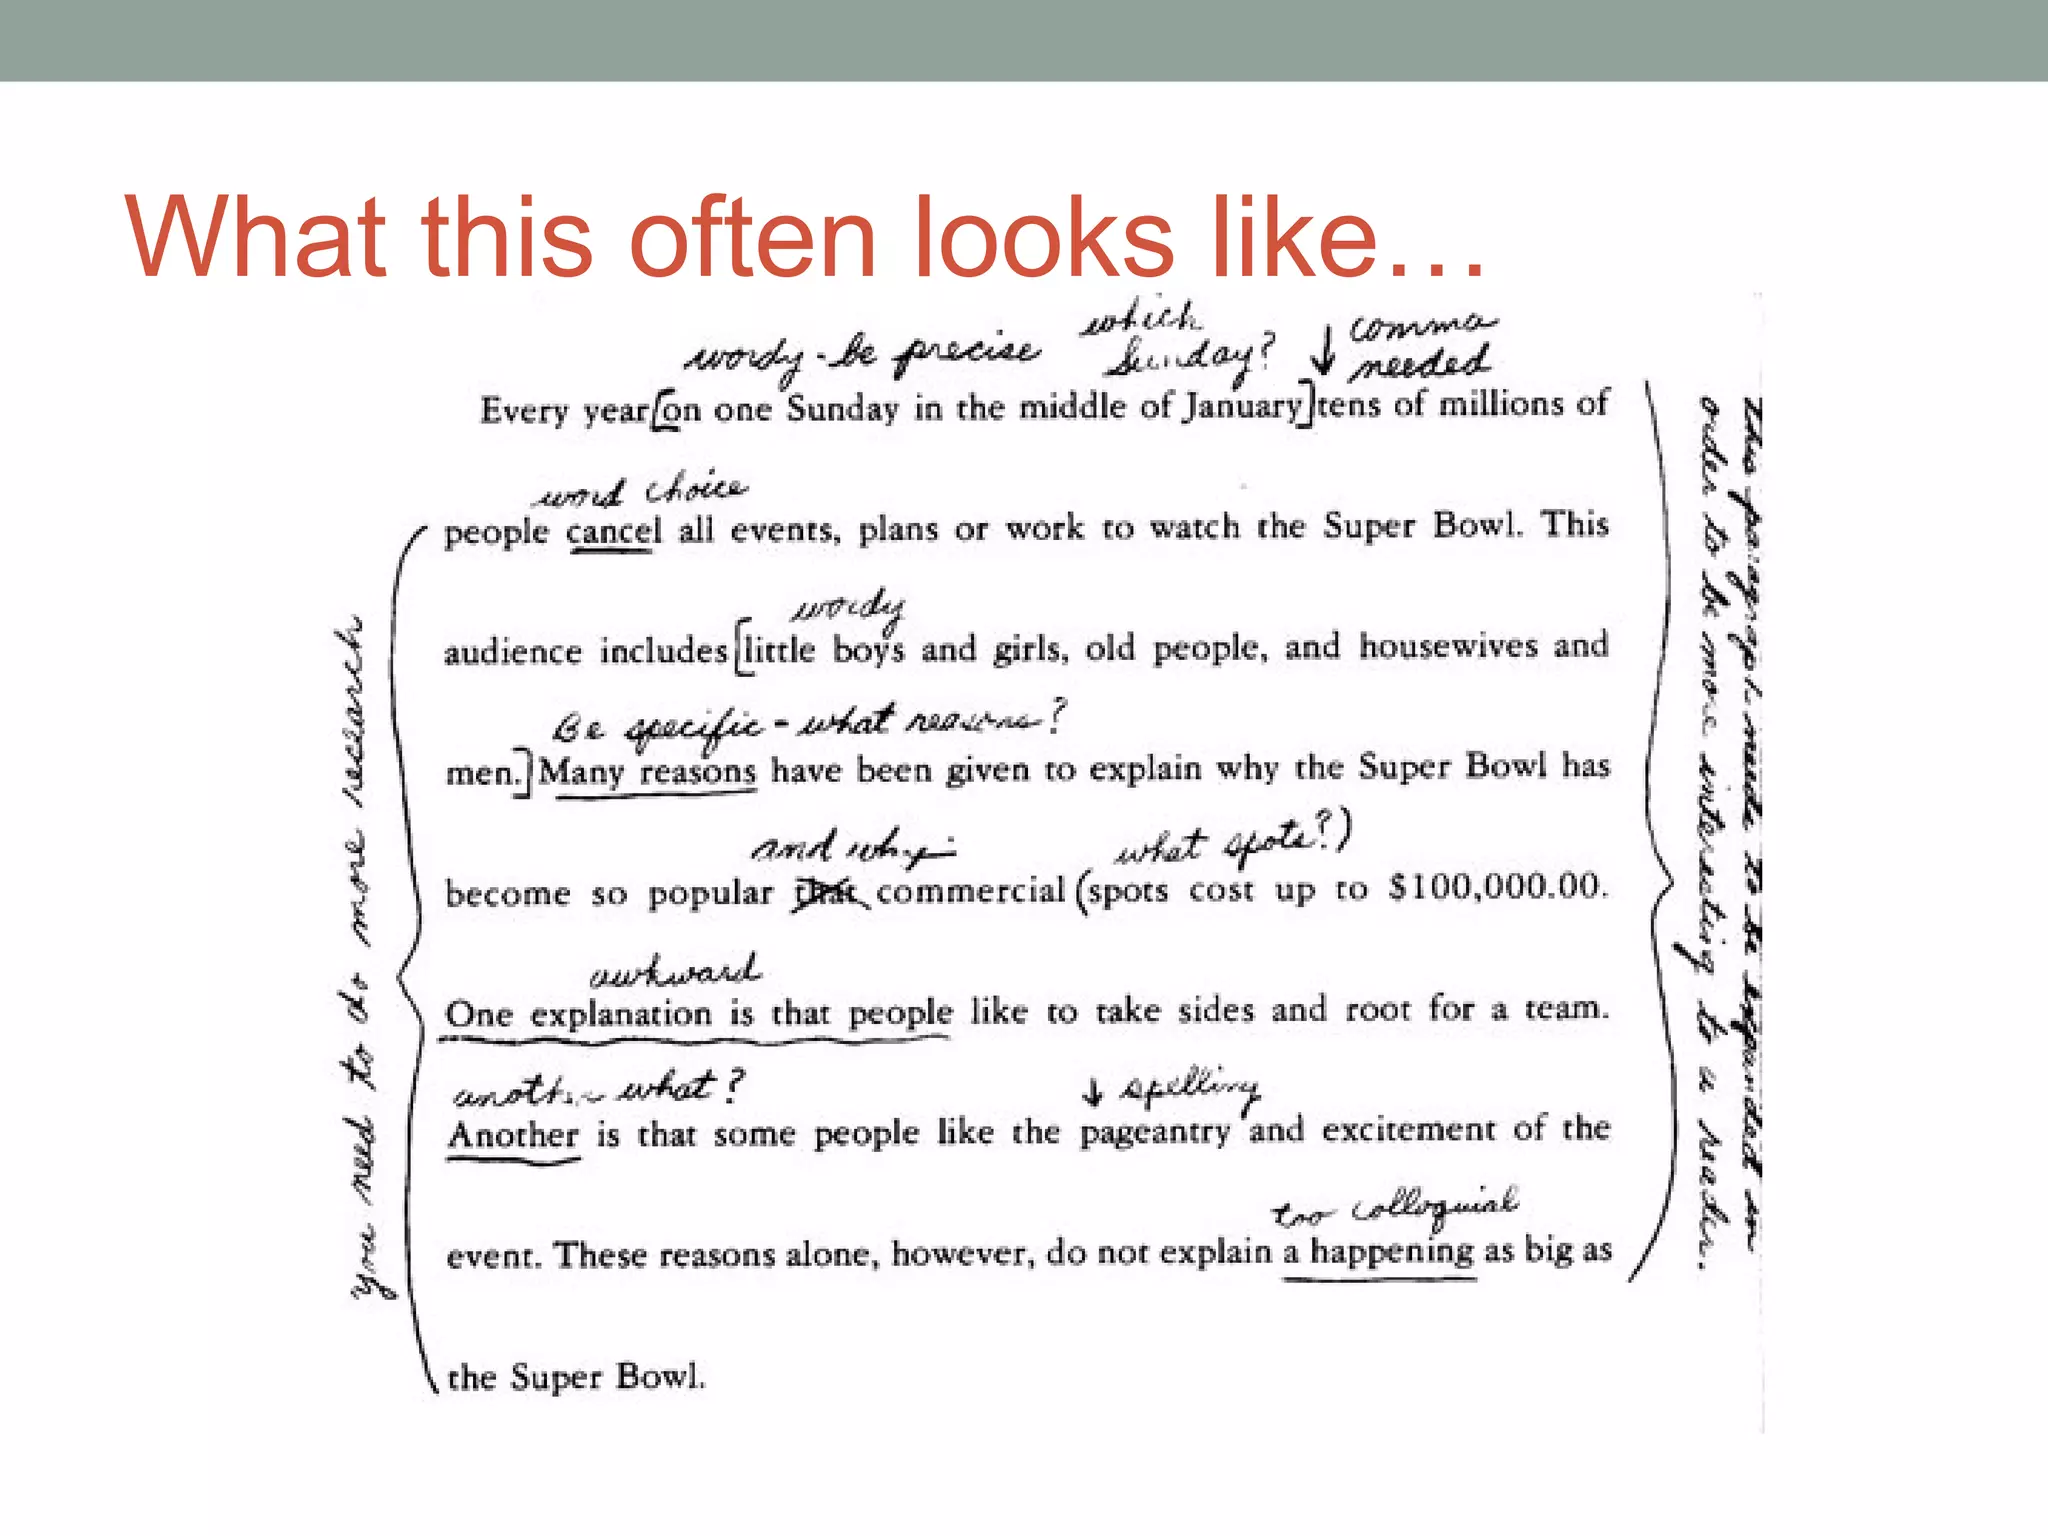 What this often looks like…
wordy - be precise which Sunday? ↓ comma needed
Every year [on one Sunday in the middle of January] tens of millions of
word choice
people cancel all events, plans or work to watch the Super Bowl. This
wordy
audience includes [little boys and girls, old people, and housewives and
Be specific - what reasons?
men.] Many reasons have been given to explain why the Super Bowl has
and why what spots?)
become so popular that commercial (spots cost up to $100,000.00.
awkward
One explanation is that people like to take sides and root for a team.
another what? ↓ spelling
Another is that some people like the pageantry and excitement of the
too colloquial
event. These reasons alone, however, do not explain a happening as big as
the Super Bowl.
you need to do more research
This paragraph needs to be expanded in
order to be more interesting to a reader.